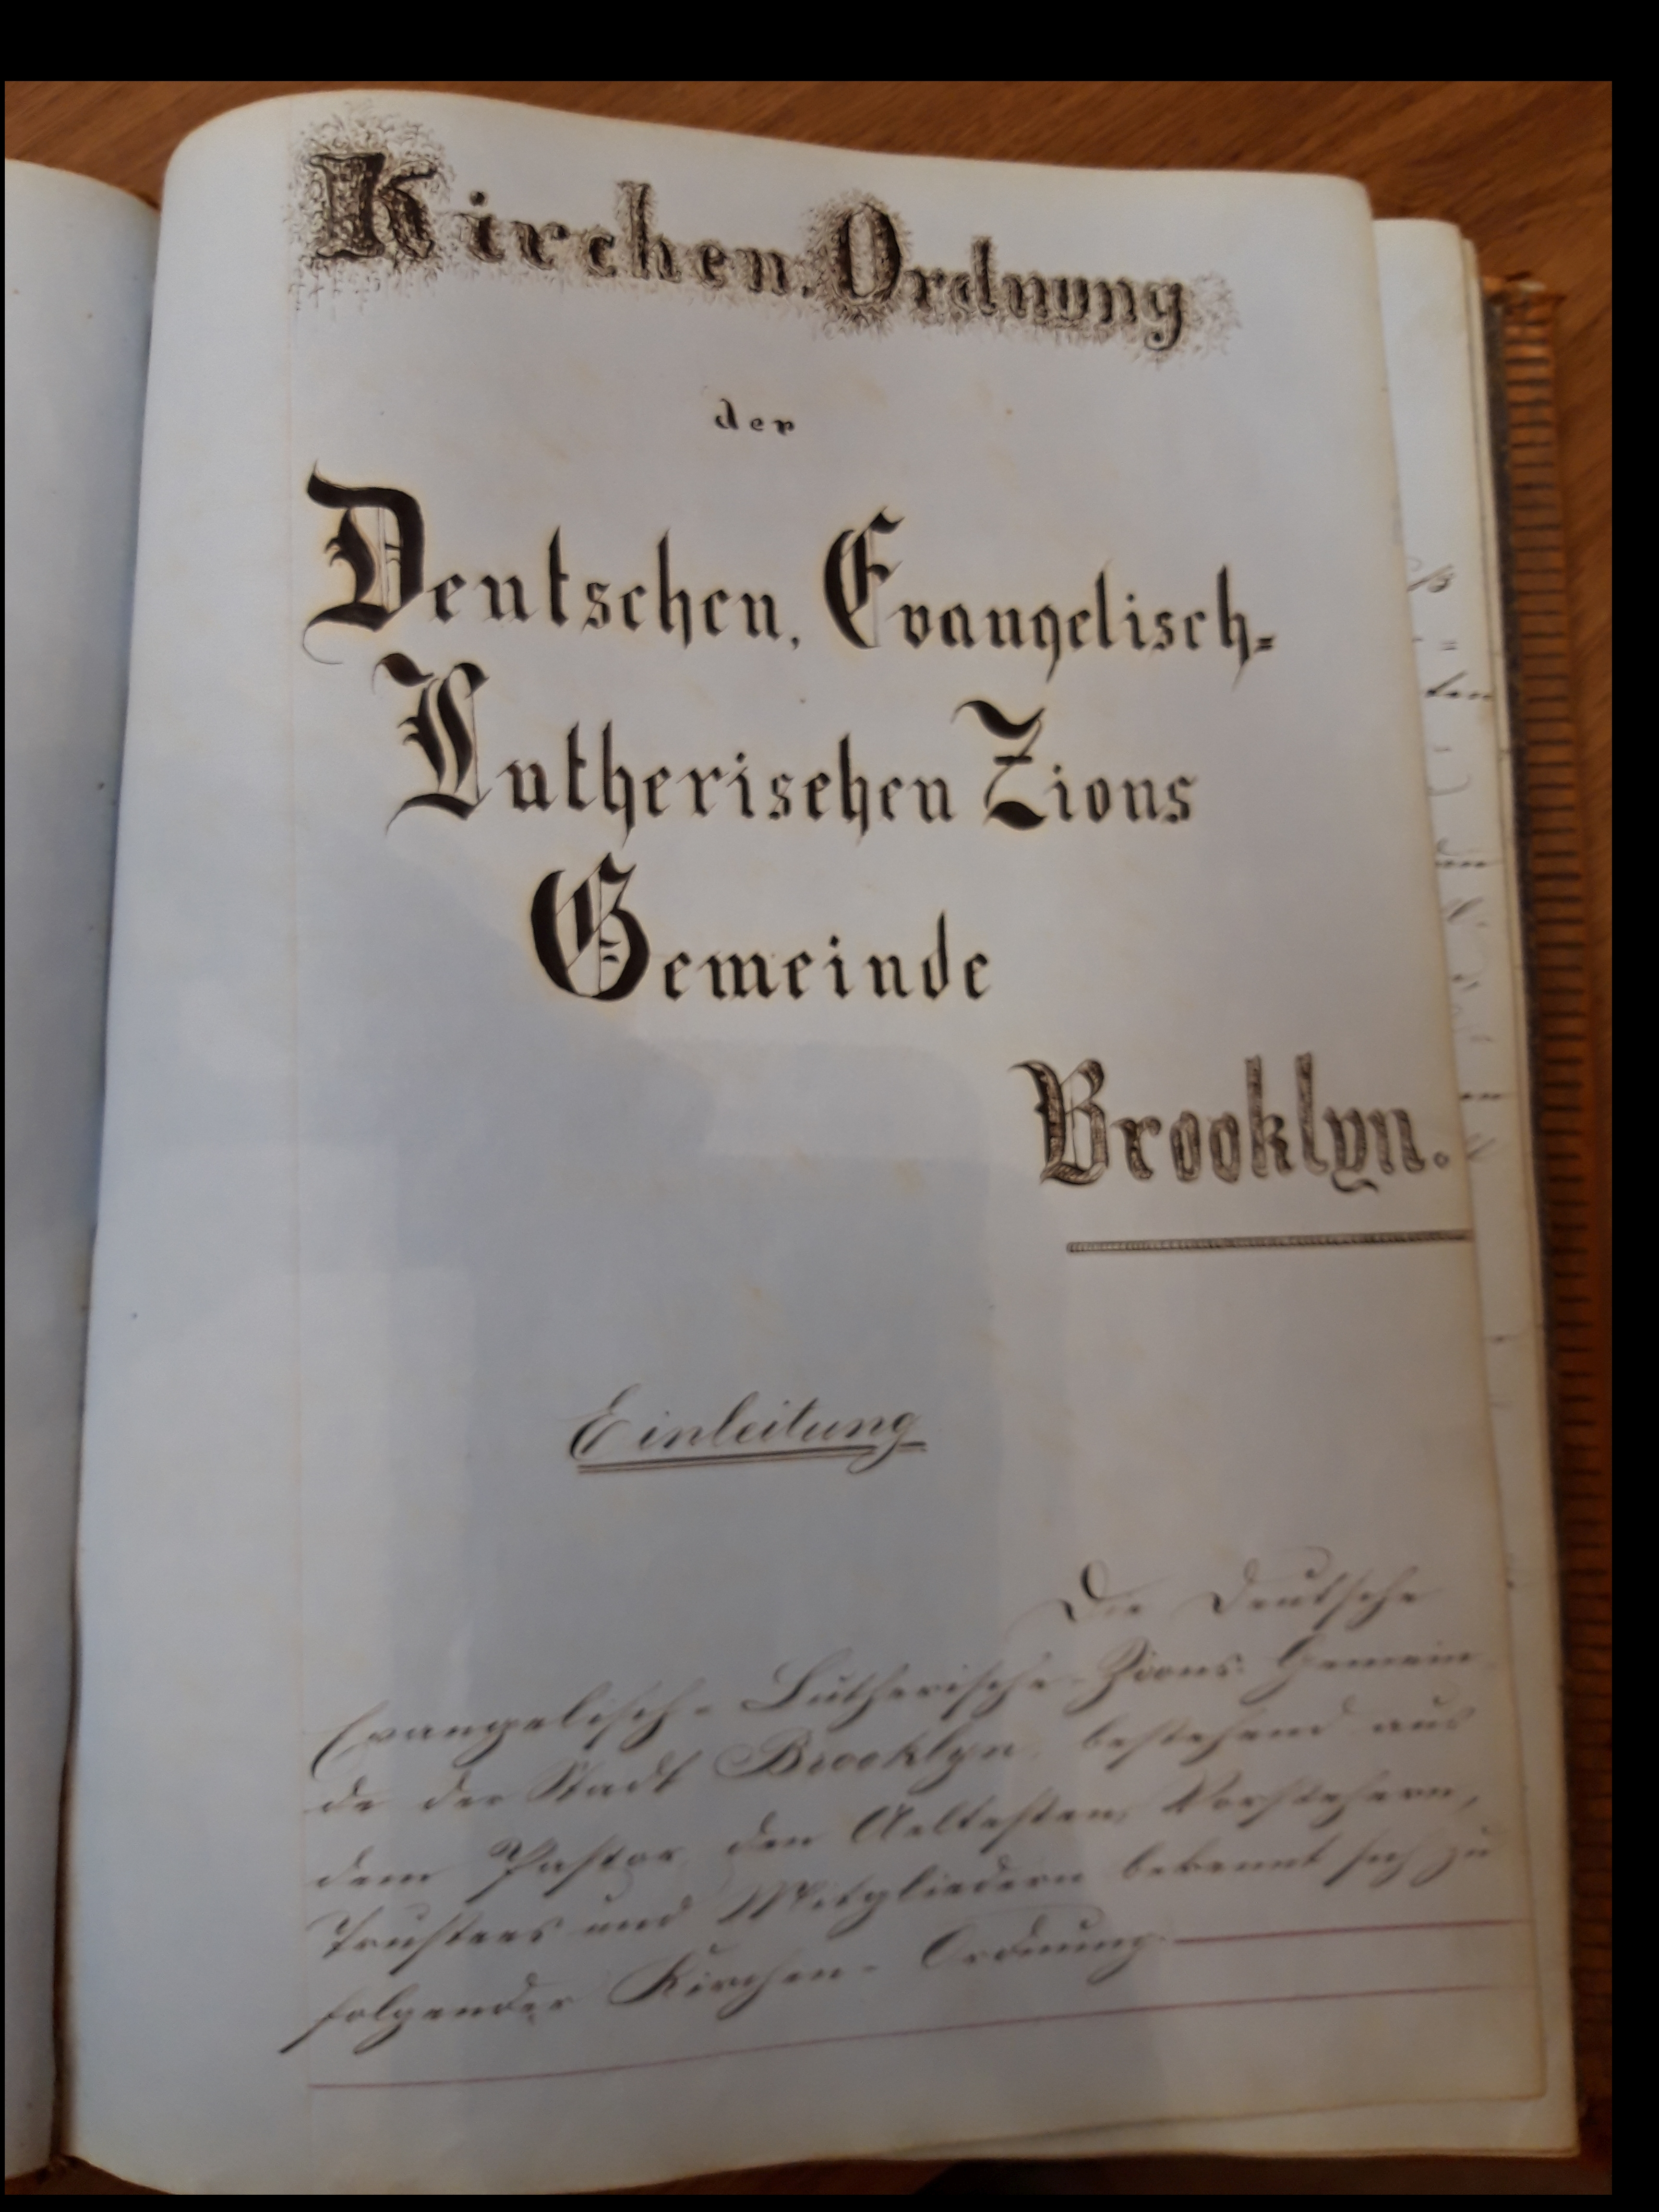 Kirchen-Ordnung
der
Deutschen, Evangelisch=
Lutherischen Zions
Gemeinde
Brooklyn.
Einleitung
Die Deutsche
Evangelisch= Lutherische Zions Gemein
de der Stadt Brooklyn, bestehend aus
dem Pastor, den Aeltesten, Vorstehern,
Trustees und Mitgliedern bekennt sich zu
folgender Kirchen- Ordnung.